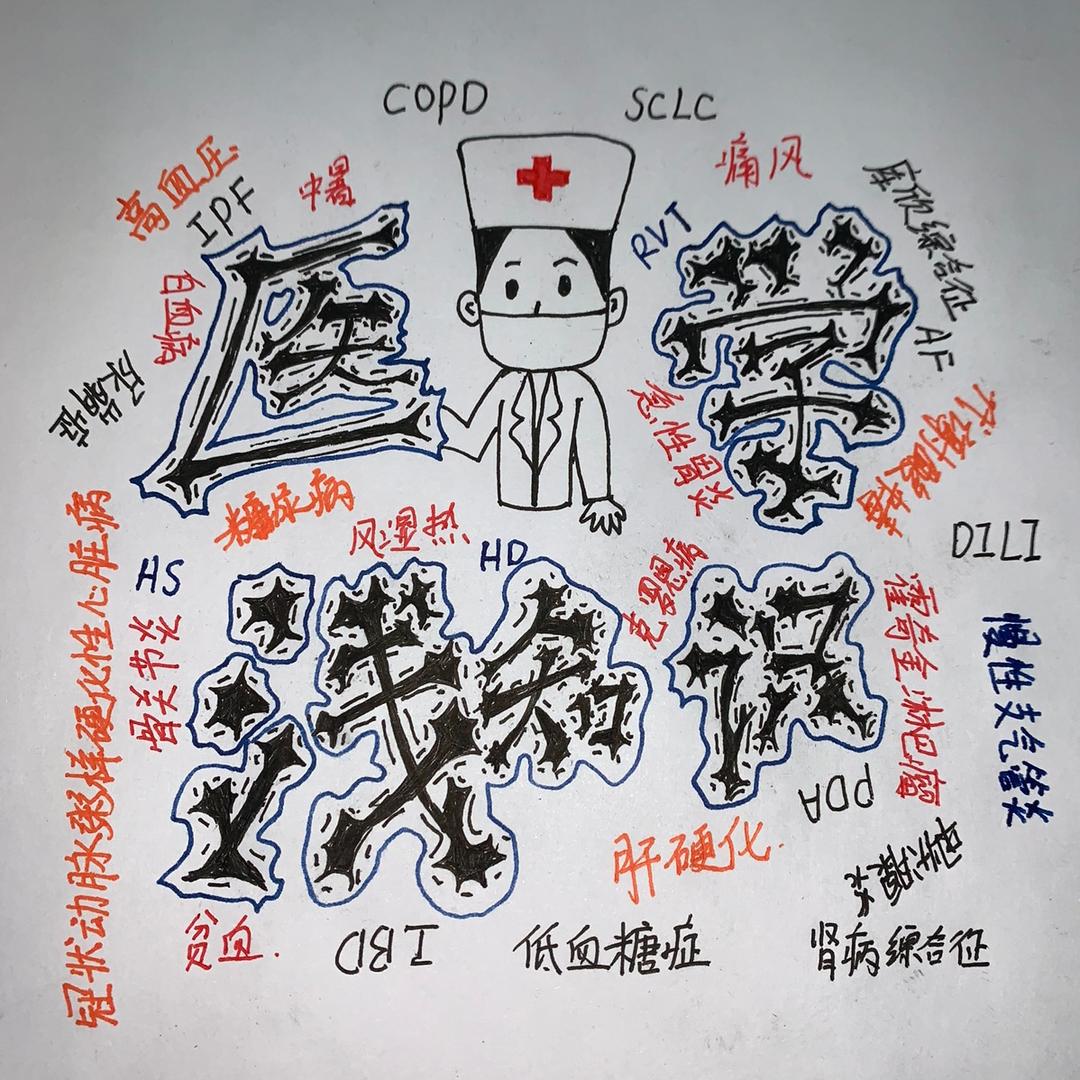 COPD
SCLC
高血压
IPF
中暑
痛风
库欣综合征
RVT
医学
白血病
尿崩症
AF
急性胃炎
糖尿病
风湿热
HD
DILI
HS
克罗恩病
霍奇金淋巴瘤
慢性支气管炎
骨关节炎
冠状动脉粥样硬化性心脏病
浅知识
PDA
肝硬化
贫血
IBD
低血糖症
肾病综合征